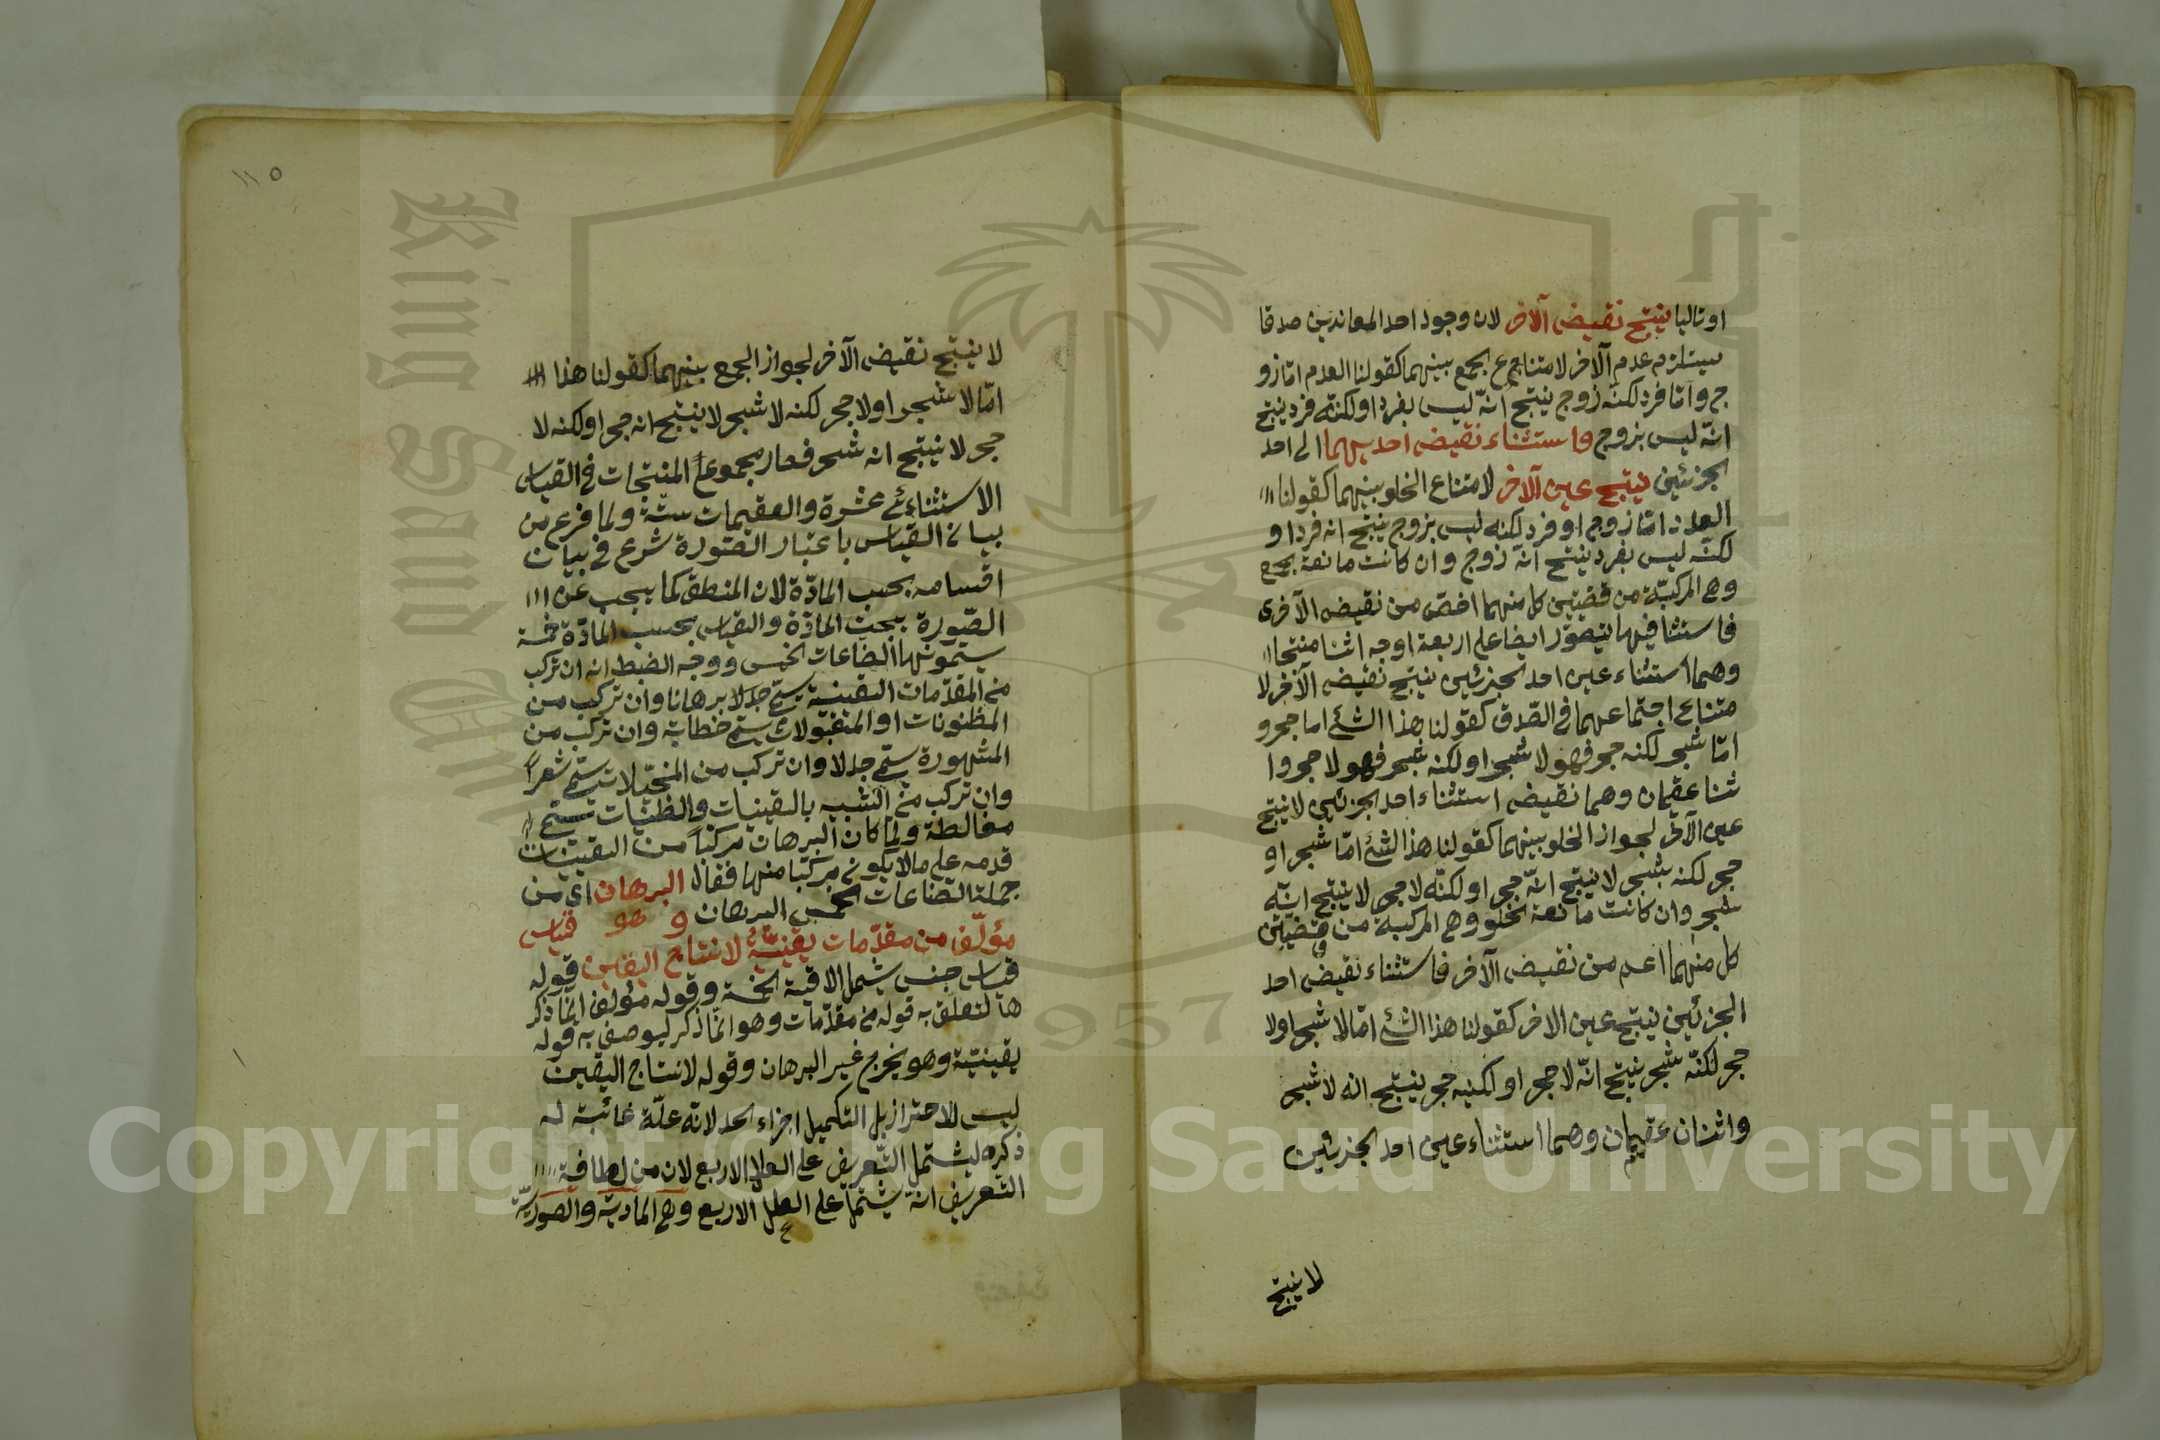 او تاليا ينتج نقيض الآخر لان وجود احد المعاندين صدقا
يستلزم عدم الآخر لامتناع الجمع بينهما كقولنا العدم اما زو
ج واما فرد لكنه زوج ينتج انّه ليس بفرد او لكنّه فرد ينتج
انّه ليس بزوج واستثناء نقيض احديهما الى احد
الجزئين ينتج عين الآخر لامتناع الخلو بينهما كقولنا
العدد امّا زوج او فرد لكنه ليس بزوج ينتج انه فرد او
لكنّه ليس بفرد ينتج انّه زوج وان كانت مانعة الجمع
وهى المركبّة من قضيتين كل منهما اخصّ من نقيض الآخرى
فاستثنا فيها يتصوّر ايضا على اربعة اوجه اثنا منتجا
وهما استثناء عين احد الجزئين ينتج نقيض الآخر لا
متناع اجتماعهما فى الصّدق كقولنا هذا الشئ اما حجر و
امّا شجر لكنه حجر فهو لا شجر او لكنه شجر فهو لا حجر وا
ثنا عقيمان وهما نقيض استثناء احد الجزئين لا ينتج
عين الآخر لجواز الخلو بينهما كقولنا هذ الشئ امّا شجر او
حجر لكنه بشجر لا ينتج انّه حجر او لكنّه لا حجر لا ينتج انّه
شجر وان كانت مانعة الخلو وهى المركبة من قضيّتين
كل منهما اعم من نقيض الآخر فاستثناء نقيض احد
الجزئين ينتج عين الاخر كقولنا هذا الشئ امّا لا شجر او لا
حجر لكنّه شجر ينتج انّه لا حجر او لكنه حجر ينتج انه لا شجر
واثنان عقيمان وهما استثناء عين احد الجزئين
لا ينتج
١١٥
لا ينتج نقيض الآخر لجواز الجمع بينهما كقولنا هذا
امّا لا شجر او لا حجر لكنه لا شجر لا ينتج انه حجر او لكنه لا
حجر لا ينتج انه شجر فصار مجموع المنتجات فى القياس
الاستثنائى عشرة والعقيمات ستّة ولما فرع من
بيان القياس باعتبار الصّورة شرع فى بيان
اقسامه بحسب المادّة لان المنطقى كما يبحب عن
الصّورة يبحث المادّة والقياس بحسب المادّة خمسة
يسمّونها الصّاعات الخمس ووجه الضبط انه ان تركب
من المقدّمات اليقينية يسمّى جدلا برهانا وان تركب من
المظنونات او المتقبولات يسمّى خطابة وان تركب من
المشهورة يسمّى جدلا وان تركب من المخيّلات يسمّى شعراً
وان تركب من الشبيه باليقينيات والظنيّات يسمّى
مغالطة ولما كان البرهان مركّباً من اليقينيّات
قدمه على ما لا يكون مركّبا منها فقال البرهان اى من
جملة الصّناعات الخمس البرهان وهو قياس
مؤلّف من مقدّمات يقينيّة لانتاج اليقين قوله
قياس جنس يشمل الاقية الخمسة وقوله مؤلف انّما ذكر
ها لتعلق به قوله من مقدّمات وهو انّما ذكر ليوصف به قوله
يقينيّة وهو يخرج غير البرهان وقوله لانتاج اليقين
ليس للاحتراز بل التكميل اجزاء الحد لانّه علّة غائبة له
ذكره ليشتمل التّعريف على العلل الاربع لان من لطافة
التّعريف انّه يشتمل على العلل الاربع وهى الماديّة والصّوريّة